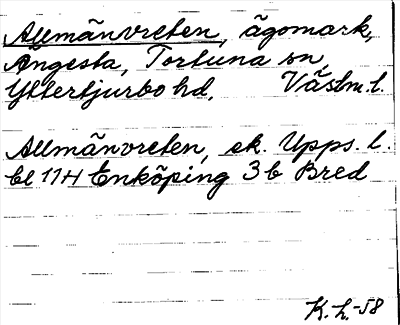 Allmänvreten, ägomark,
Ängesta, Tortuna sn,
Yttertjurbo hd, Västm. l.
Allmänvreten, ek. Upps. l.
bl 11H Enköping 3b Bred
K. L. -58